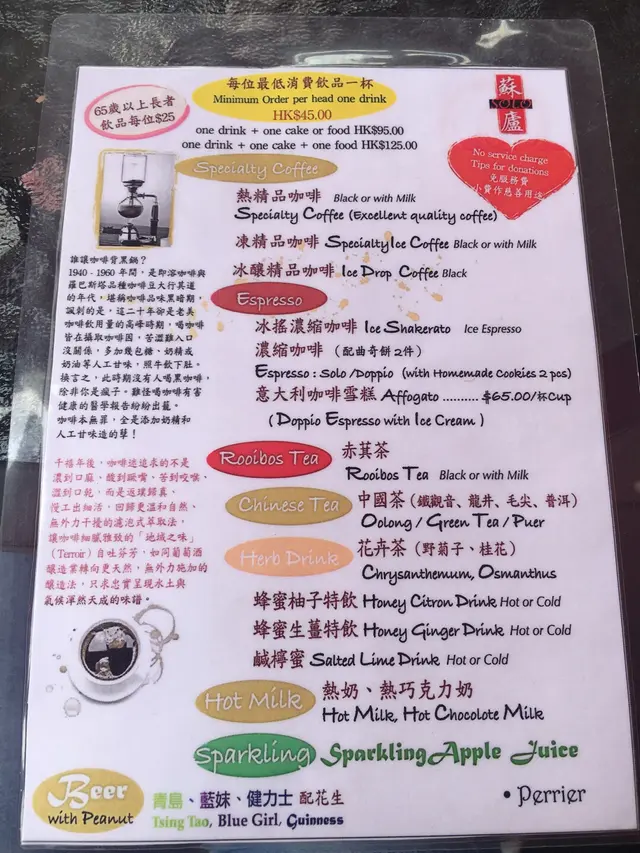 65歲以上長者
飲品每位$25
每位最低消費飲品一杯
Minimum Order per head one drink
HK$45.00
one drink + one cake or food HK$95.00
one drink + one cake + one food HK$125.00
蘇
SOLO
廬
No service charge
Tips for donations
免服務費
小費作慈善用途
Specialty Coffee
熱精品咖啡 Black or with Milk
Specialty Coffee (Excellent quality coffee)
凍精品咖啡 Specialty Ice Coffee Black or with Milk
冰釀精品咖啡 Ice Drop Coffee Black
Espresso
冰搖濃縮咖啡 Ice Shakerato Ice Espresso
濃縮咖啡 (配曲奇餅2件)
Espresso : Solo /Doppio (with Homemade Cookies 2 pcs)
意大利咖啡雪糕 Affogato .......... $65.00/杯Cup
(Doppio Espresso with Ice Cream )
Rooibos Tea
赤萁茶
Rooibos Tea Black or with Milk
Chinese Tea
中國茶 (鐵觀音、龍井、毛尖、普洱)
Oolong / Green Tea / Puer
Herb Drink
花卉茶 (野菊子、桂花)
Chrysanthemum, Osmanthus
蜂蜜柚子特飲 Honey Citron Drink Hot or Cold
蜂蜜生薑特飲 Honey Ginger Drink Hot or Cold
鹹檸蜜 Salted Lime Drink Hot or Cold
Hot Milk
熱奶、熱巧克力奶
Hot Milk, Hot Chocolate Milk
Sparkling
Sparkling Apple Juice
• Perrier
Beer
with Peanut
青島、藍妹、健力士 配花生
Tsing Tao, Blue Girl, Guinness
誰讓咖啡背黑鍋？
1940 - 1960 年間，是即溶咖啡與
羅巴斯塔品種咖啡豆大行其道
的年代，堪稱咖啡品味黑暗期，
諷刺的是，這二十年卻是老美
咖啡飲用量的高峰時期，喝咖啡
皆在攝取咖啡因，苦澀難入口
沒關係，多加幾包糖，奶精或
奶油等人工甘味，照牛飲下肚。
換言之，此時期沒有人喝黑咖啡，
除非你是瘋子。難怪喝咖啡有害
健康的醫學報告紛紛出籠。
咖啡本無罪，全是添加奶精和
人工甘味造的孽！
千禧年後，咖啡迷追求的不是
濃到口麻、酸到噘嘴、苦到咬喉、
澀到口乾，而是返璞歸真、
慢工出細活，回歸更溫和自然、
無外力干擾的濾泡式萃取法，
讓咖啡細膩雅致的「地域之味」
(Terroir) 自吐芬芳，如同葡萄酒
釀造業轉向更天然，無外力施加的
釀造法，只求忠實呈現水土與
氣候渾然天成的味譜。